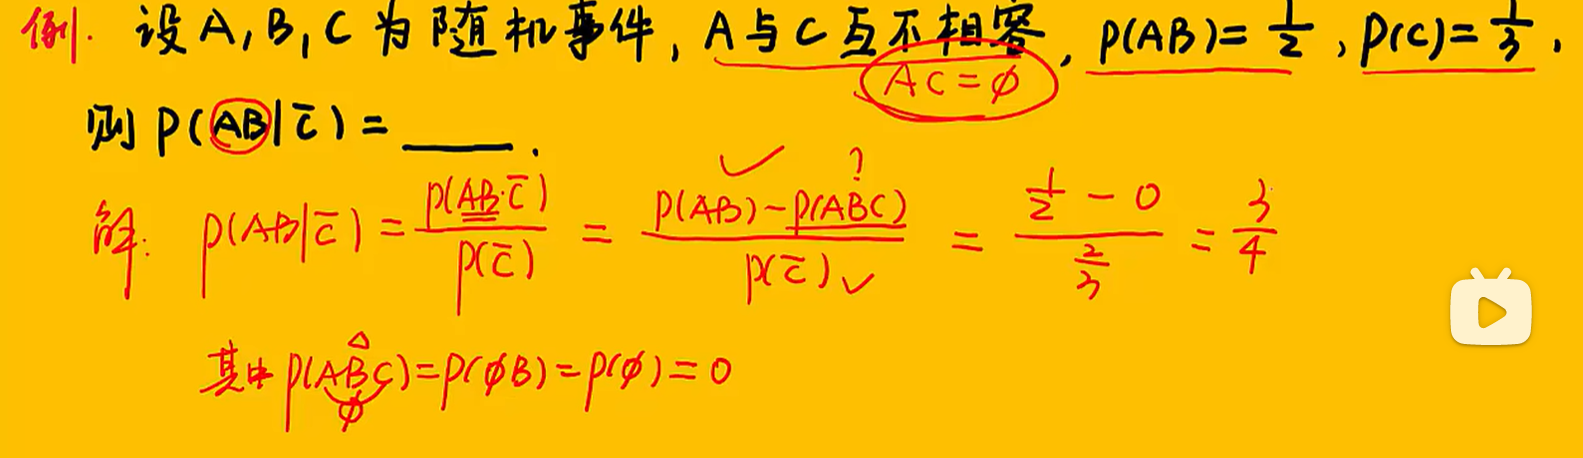 例. 设A,B,C为随机事件, A与C互不相容, P(AB)=1/2, P(C)=1/3,
AC=∅
则P(AB|C̅)=____.
✓ ?
解: P(AB|C̅)=P(AB·C̅)/P(C̅)=(P(AB)-P(ABC))/P(C̅)✓=(1/2-0)/(2/3)=3/4
其中P(ABC)=P(∅B)=P(∅)=0
∅